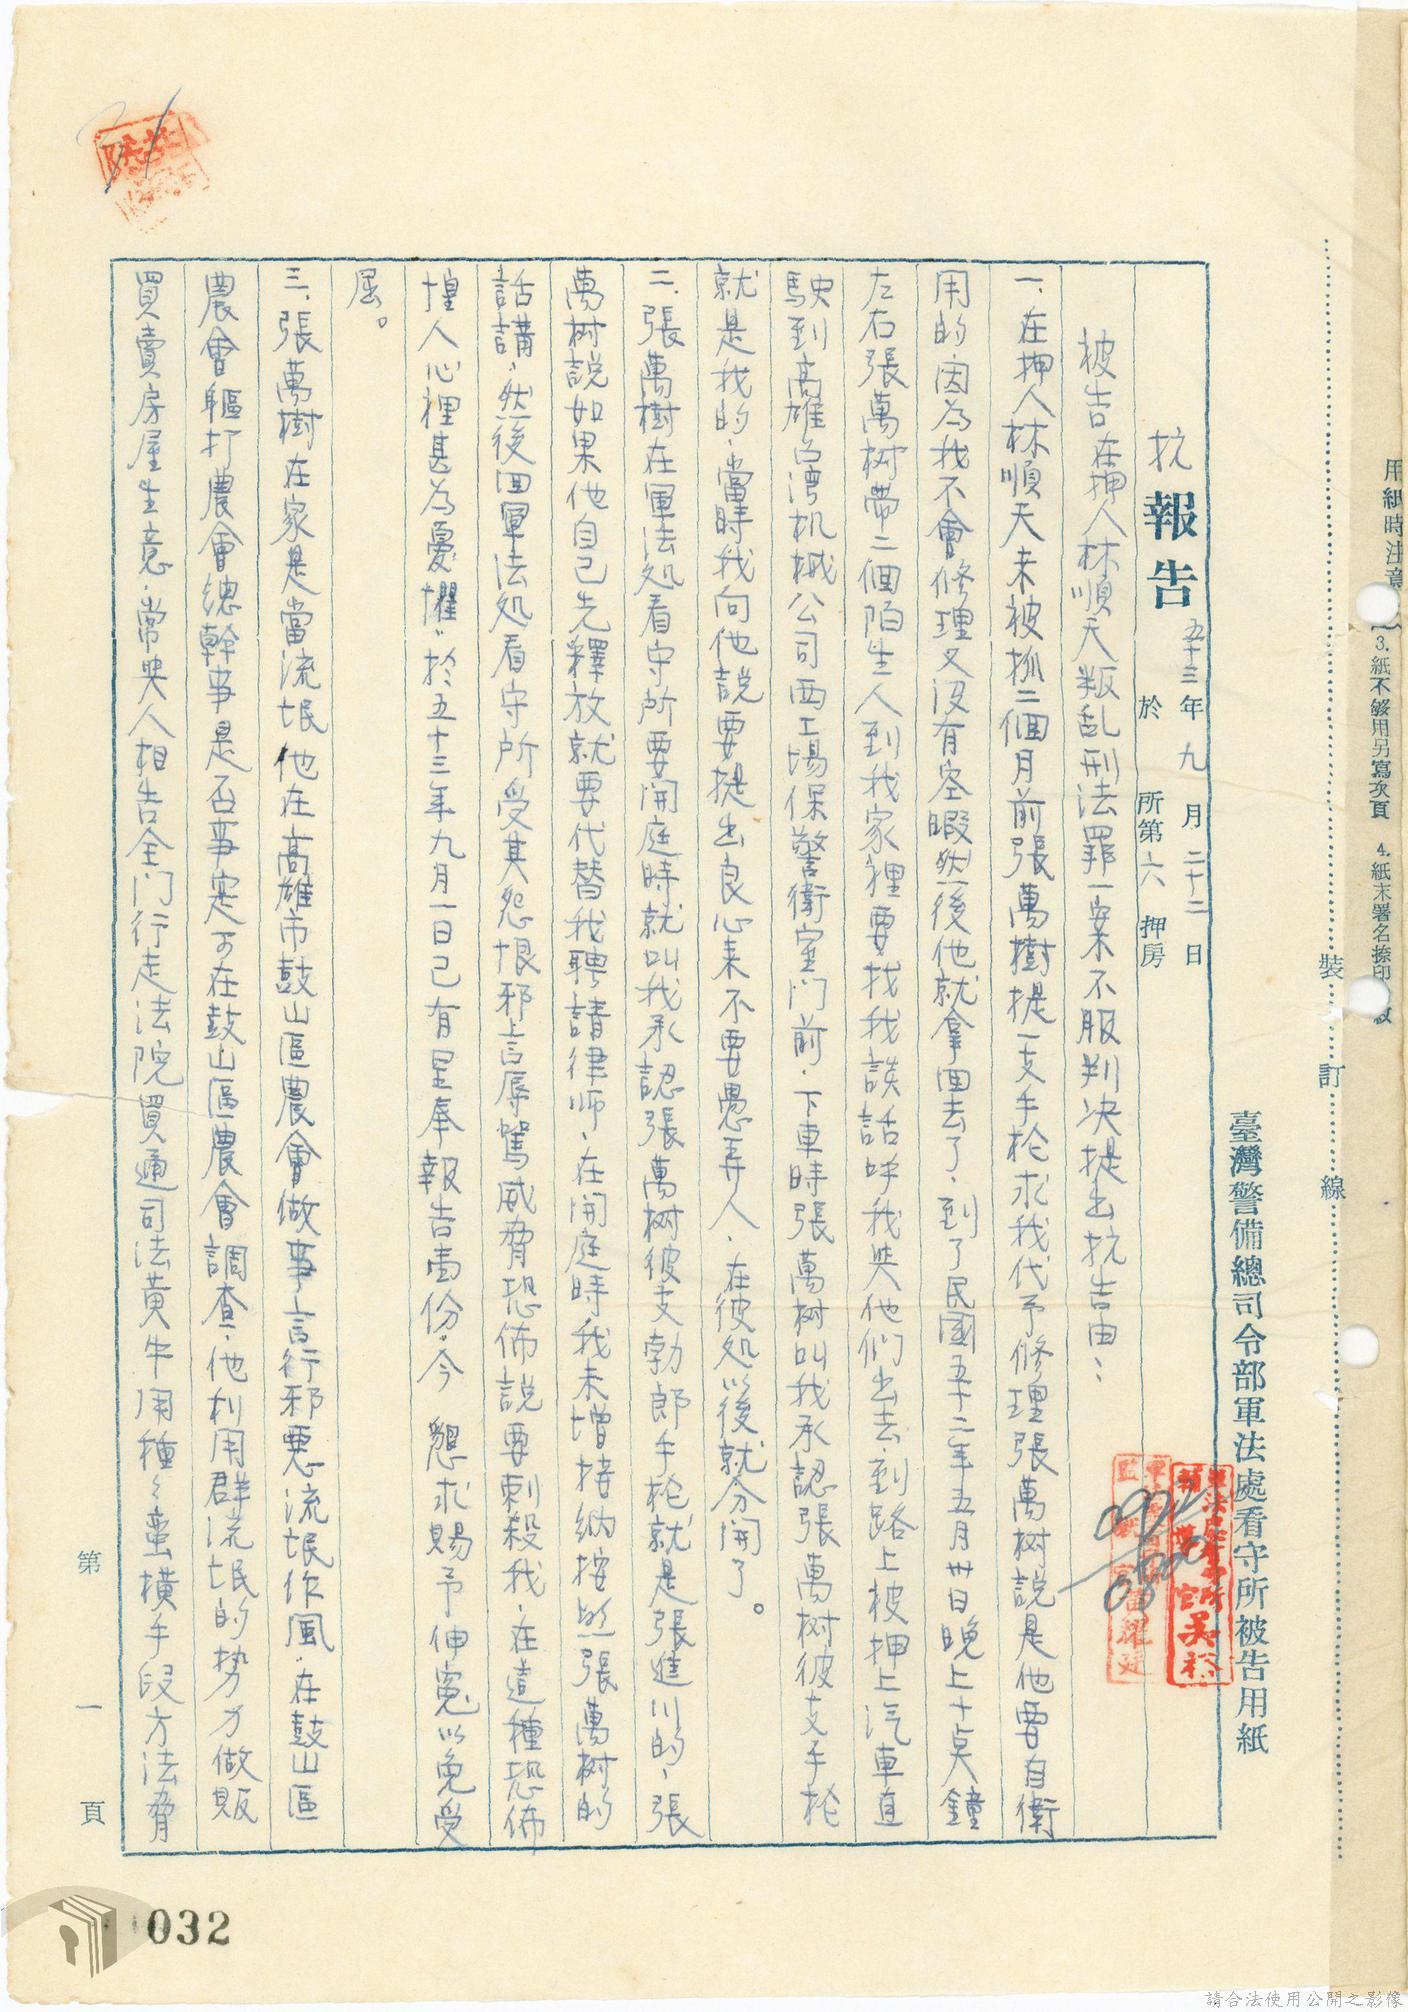 用紙時注意
3.紙不够用另寫次頁
4.紙末署名捺印
裝
訂
線
臺灣警備總司令部軍法處看守所被告用紙
抗報告
五十三年九月二十二日
於所第六押房
被告在押人林順天叛乱刑法罪一案不服判决提出抗告由：
一、在押人林順天未被抓二個月前張萬樹提一支手枪求我代予修理張萬树説是他要自衛
用的，因為我不會修理又没有空暇然後他就拿回去了，到了民國五十二年五月卅日晚上十点鐘
左右張萬树帶二個陌生人到我家裡要找我談話呼我與他們出去，到路上被押上汽車直
駛到高雄台湾机械公司西工場保警衛室门前，下車時張萬树叫我承認張萬树彼支手枪
就是我的，當時我向他説要提出良心来不要愚弄人，在彼処以後就分開了。
二、張萬樹在軍法処看守所要開庭時就叫我承認張萬树彼支勃郎手枪就是張進川的，張
萬树説如果他自己先釋放就要代替我聘請律师，在開庭時我未增接納按照張萬树的
話講，然後回軍法処看守所受其怨恨邪言辱駡威脅恐佈説要刺殺我，在這種恐佈
惶人心裡甚為憂懼，於五十三年九月一日已有呈奉報告壹份，今　懇求賜予伸寃以免受
屈。
三、張萬樹在家是當流氓他在高雄市鼓山區農會做事言行邪惡流氓作風，在鼓山區
農會毆打農會總幹事是否事实可在鼓山區農會調查，他利用群流氓的势力做販
買賣房屋生意，常與人相告全门行走法院買通司法黄牛用種々蛮横手段方法脅
第一頁
032
請合法使用公開之影像